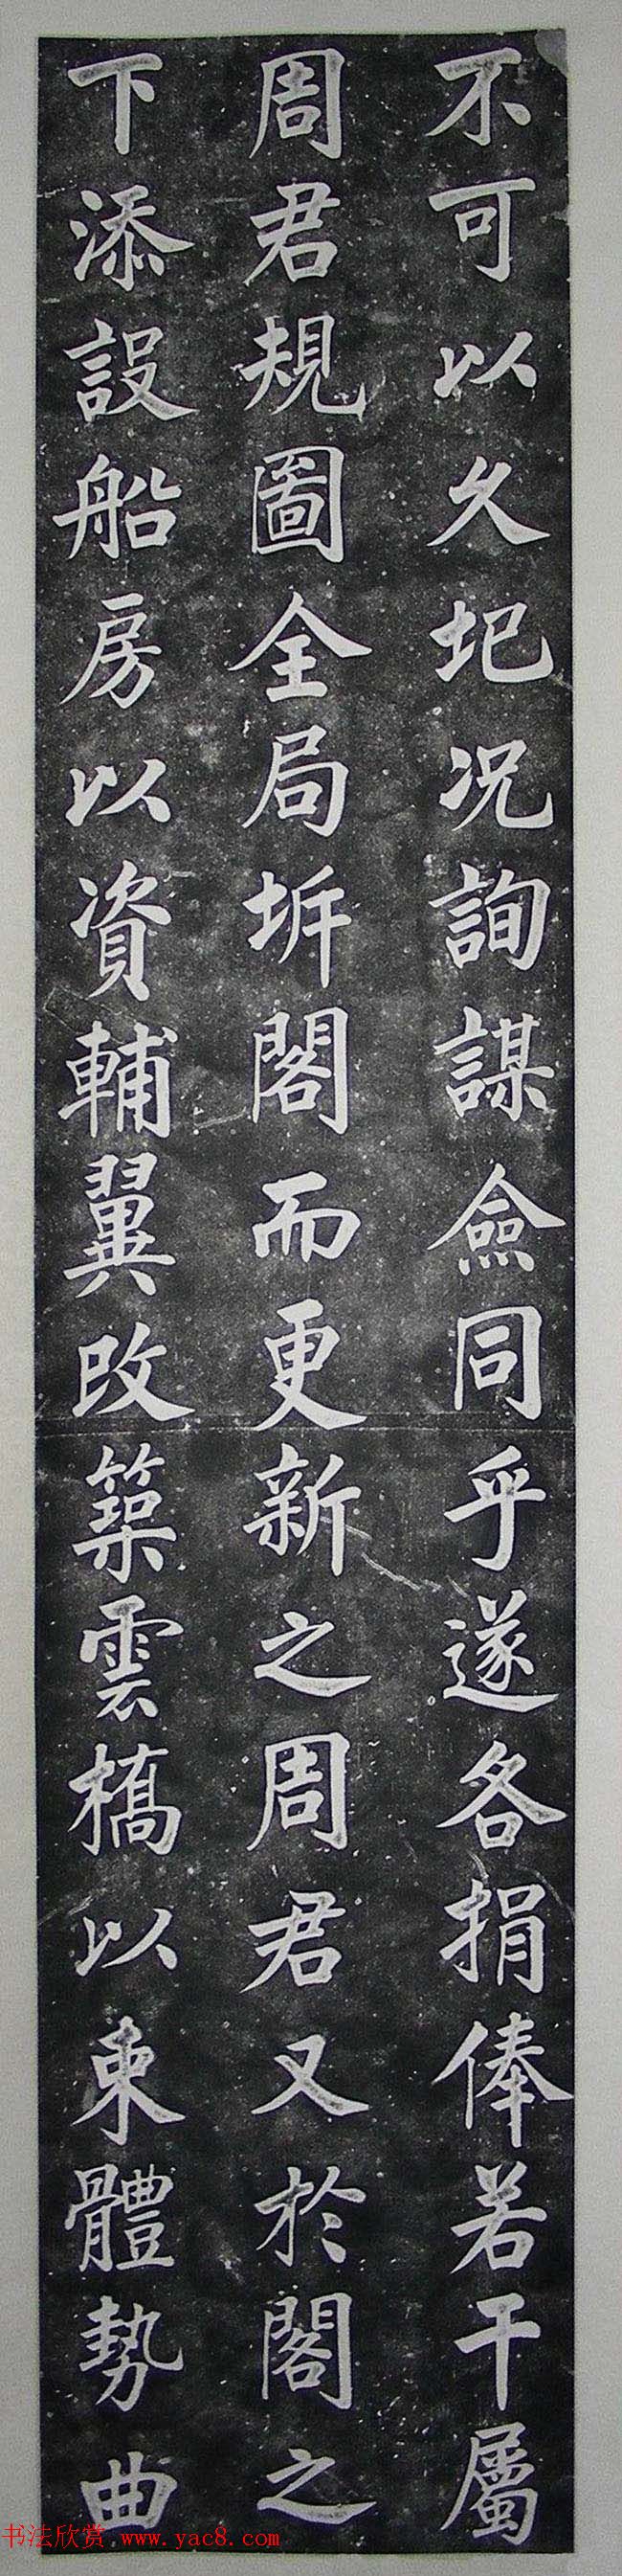 不可以久圮况詢謀僉同乎遂各捐俸若干屬
周君規圖全局坼閣而更新之周君又於閣之
下添設船房以資輔翼改築雲橋以束體勢曲
书法欣赏 www.yac8.com